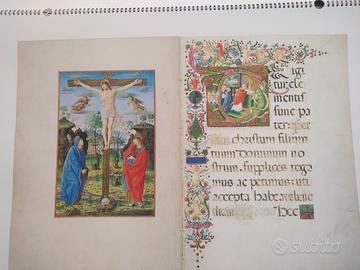 E igi
tur cle
mentis
sime pa
ter: per
christum filium
tuum dominum no
strum. supplices roga
mus ac petimus: uti
accepta habeas
hec
subito